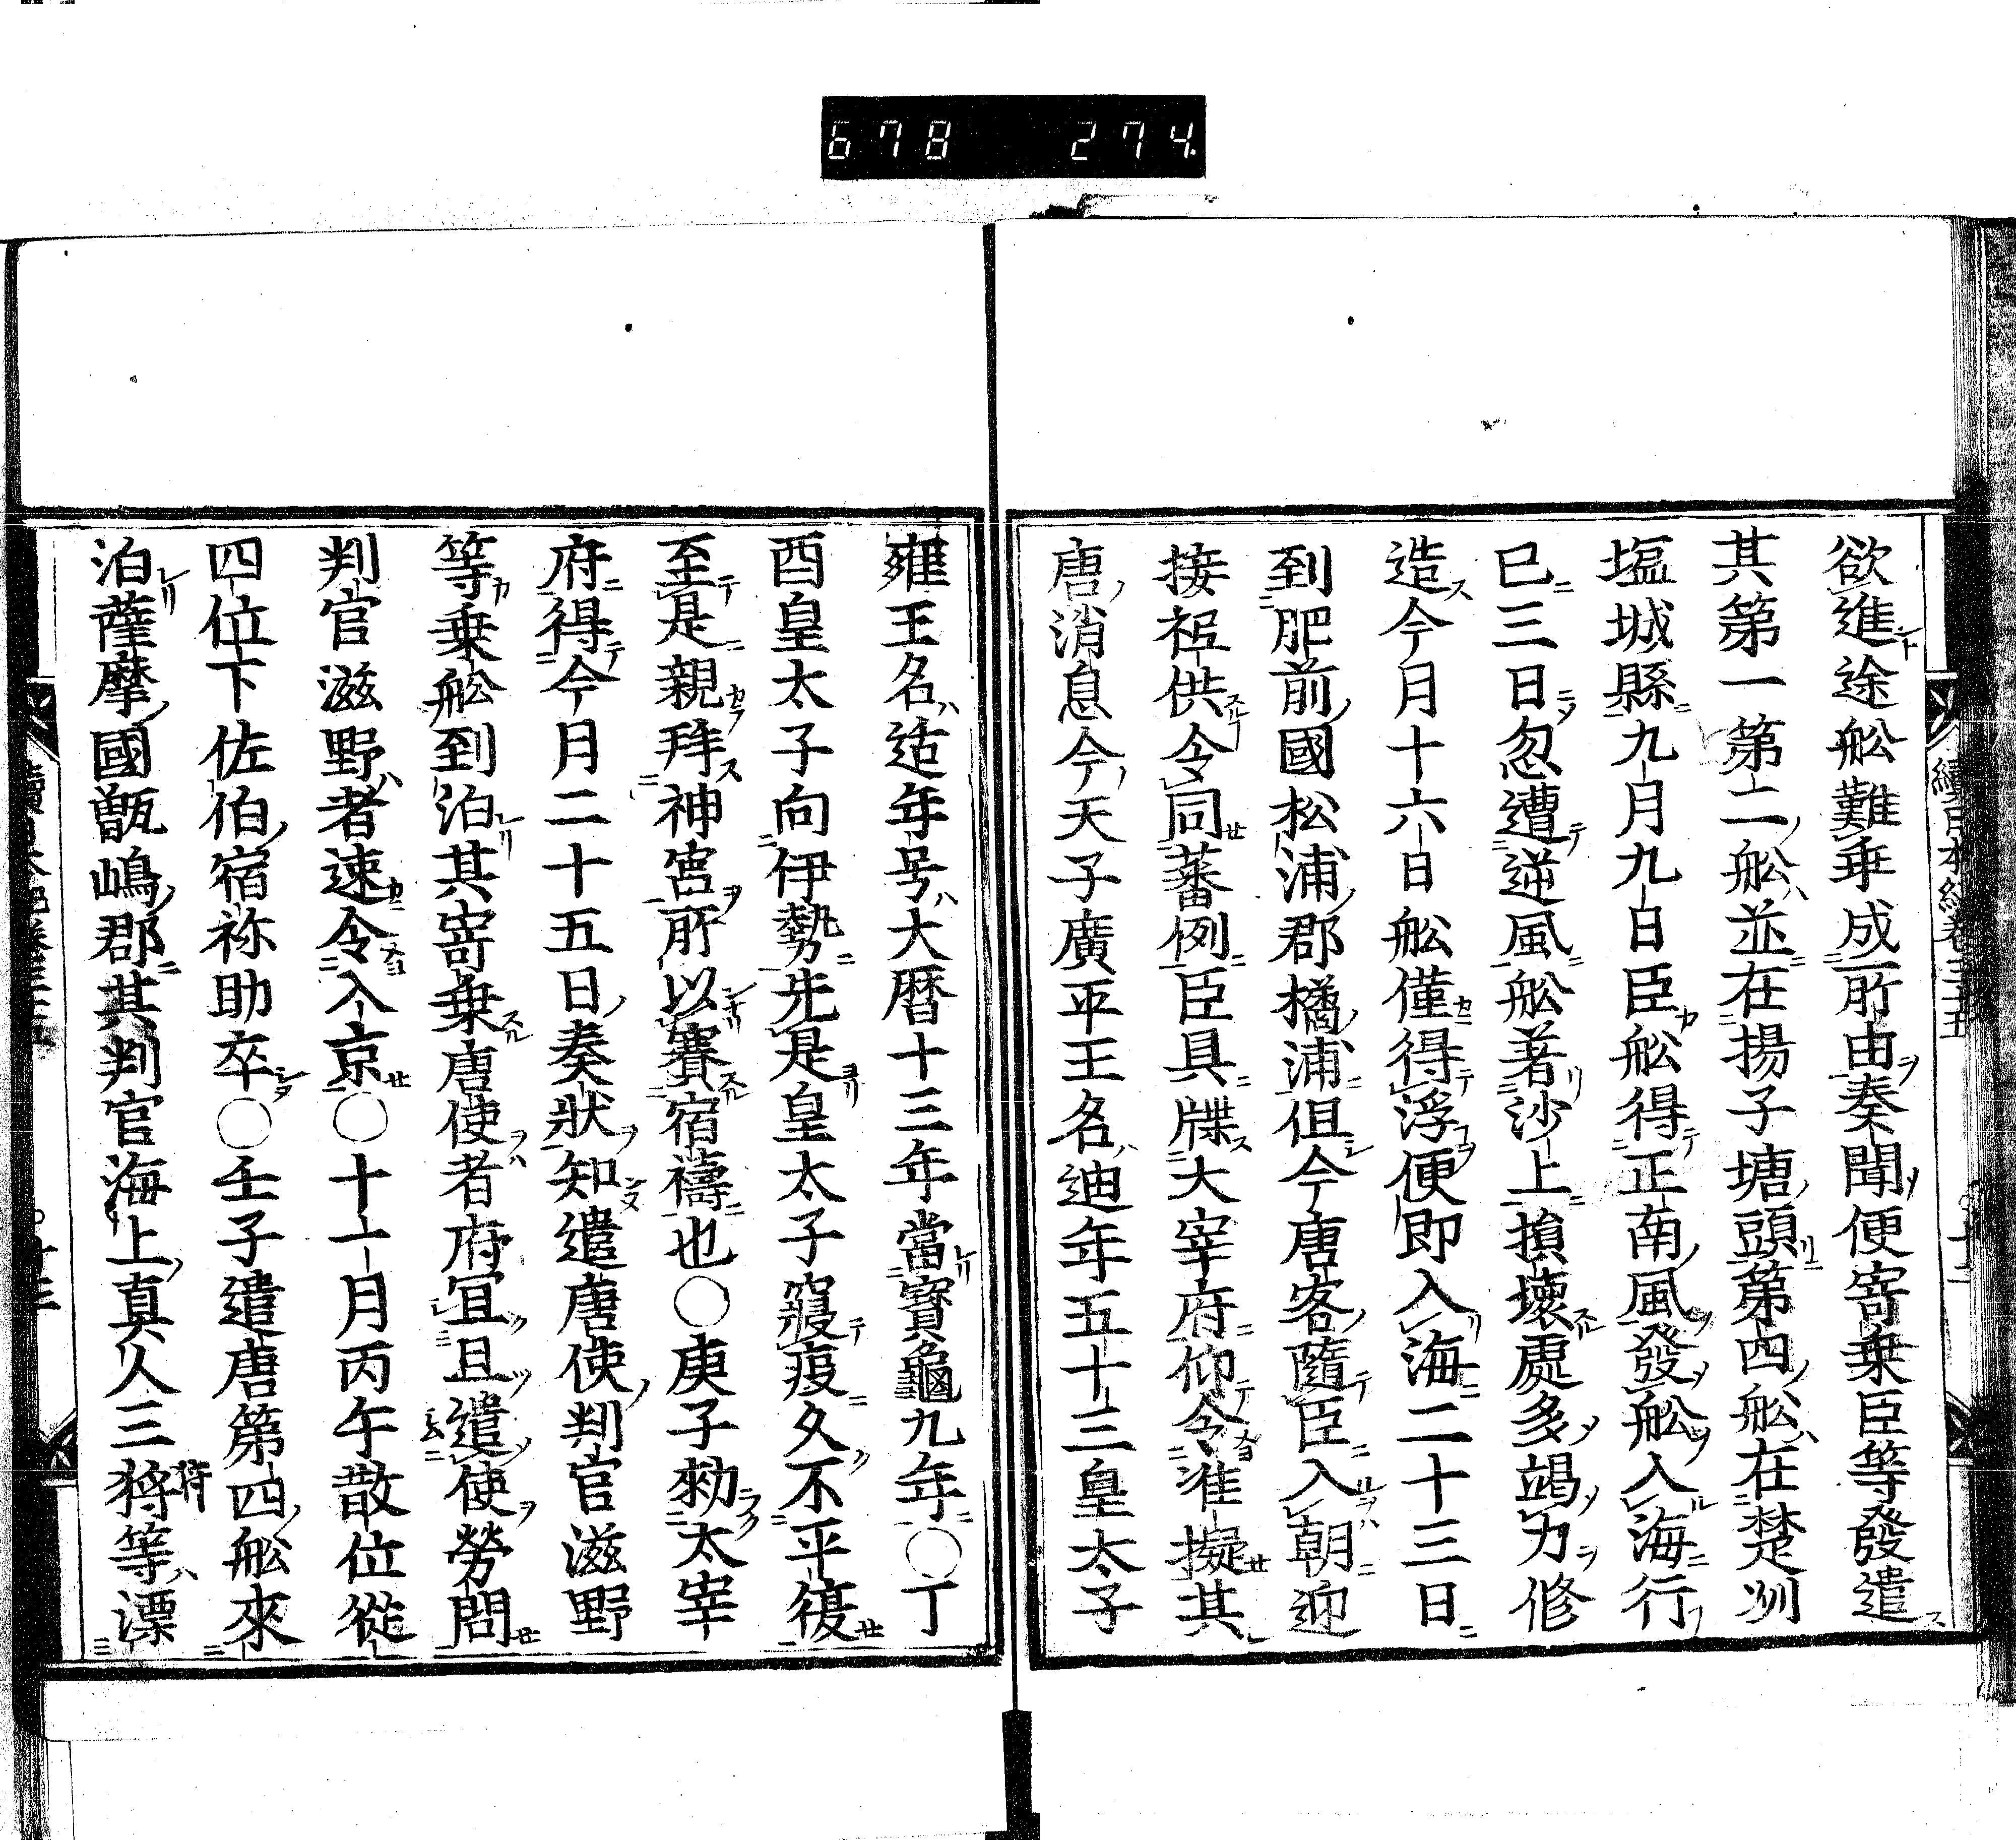 678 274
欲進途舩難乖成所由奏聞便寄乗臣等發遣
其第一第二舩並在揚子塘頭第四舩在楚州
塩城縣九月九日臣舩得正南風發舩入海行
已三日忽遭逆風舩著沙上損壞處多竭力修
造今月十六日舩僅得浮便即入海二十三日
到肥前國松浦郡橘浦但今唐客隨臣入朝迎
接祗供令同蕃例臣具牒大宰府仰令准擬其
唐消息今天子廣平王名迪年五十三皇太子
雍王名适年号大暦十三年當寳龜九年〇丁
酉皇太子向伊勢先是皇太子寢疾久不平復
至是親拜神宮所以賽宿禱也〇庚子勑太宰
府得今月二十五日奏狀知遣唐使判官滋野
等乗舩到泊其寄乗唐使者府冝且遣使勞問
判官滋野者速令入京〇十一月丙午散位從
四位下佐伯宿祢助卒〇壬子遣唐第四舩來
泊薩摩國甑嶋郡其判官海上真人三狩等漂
續日本紀卷三十五